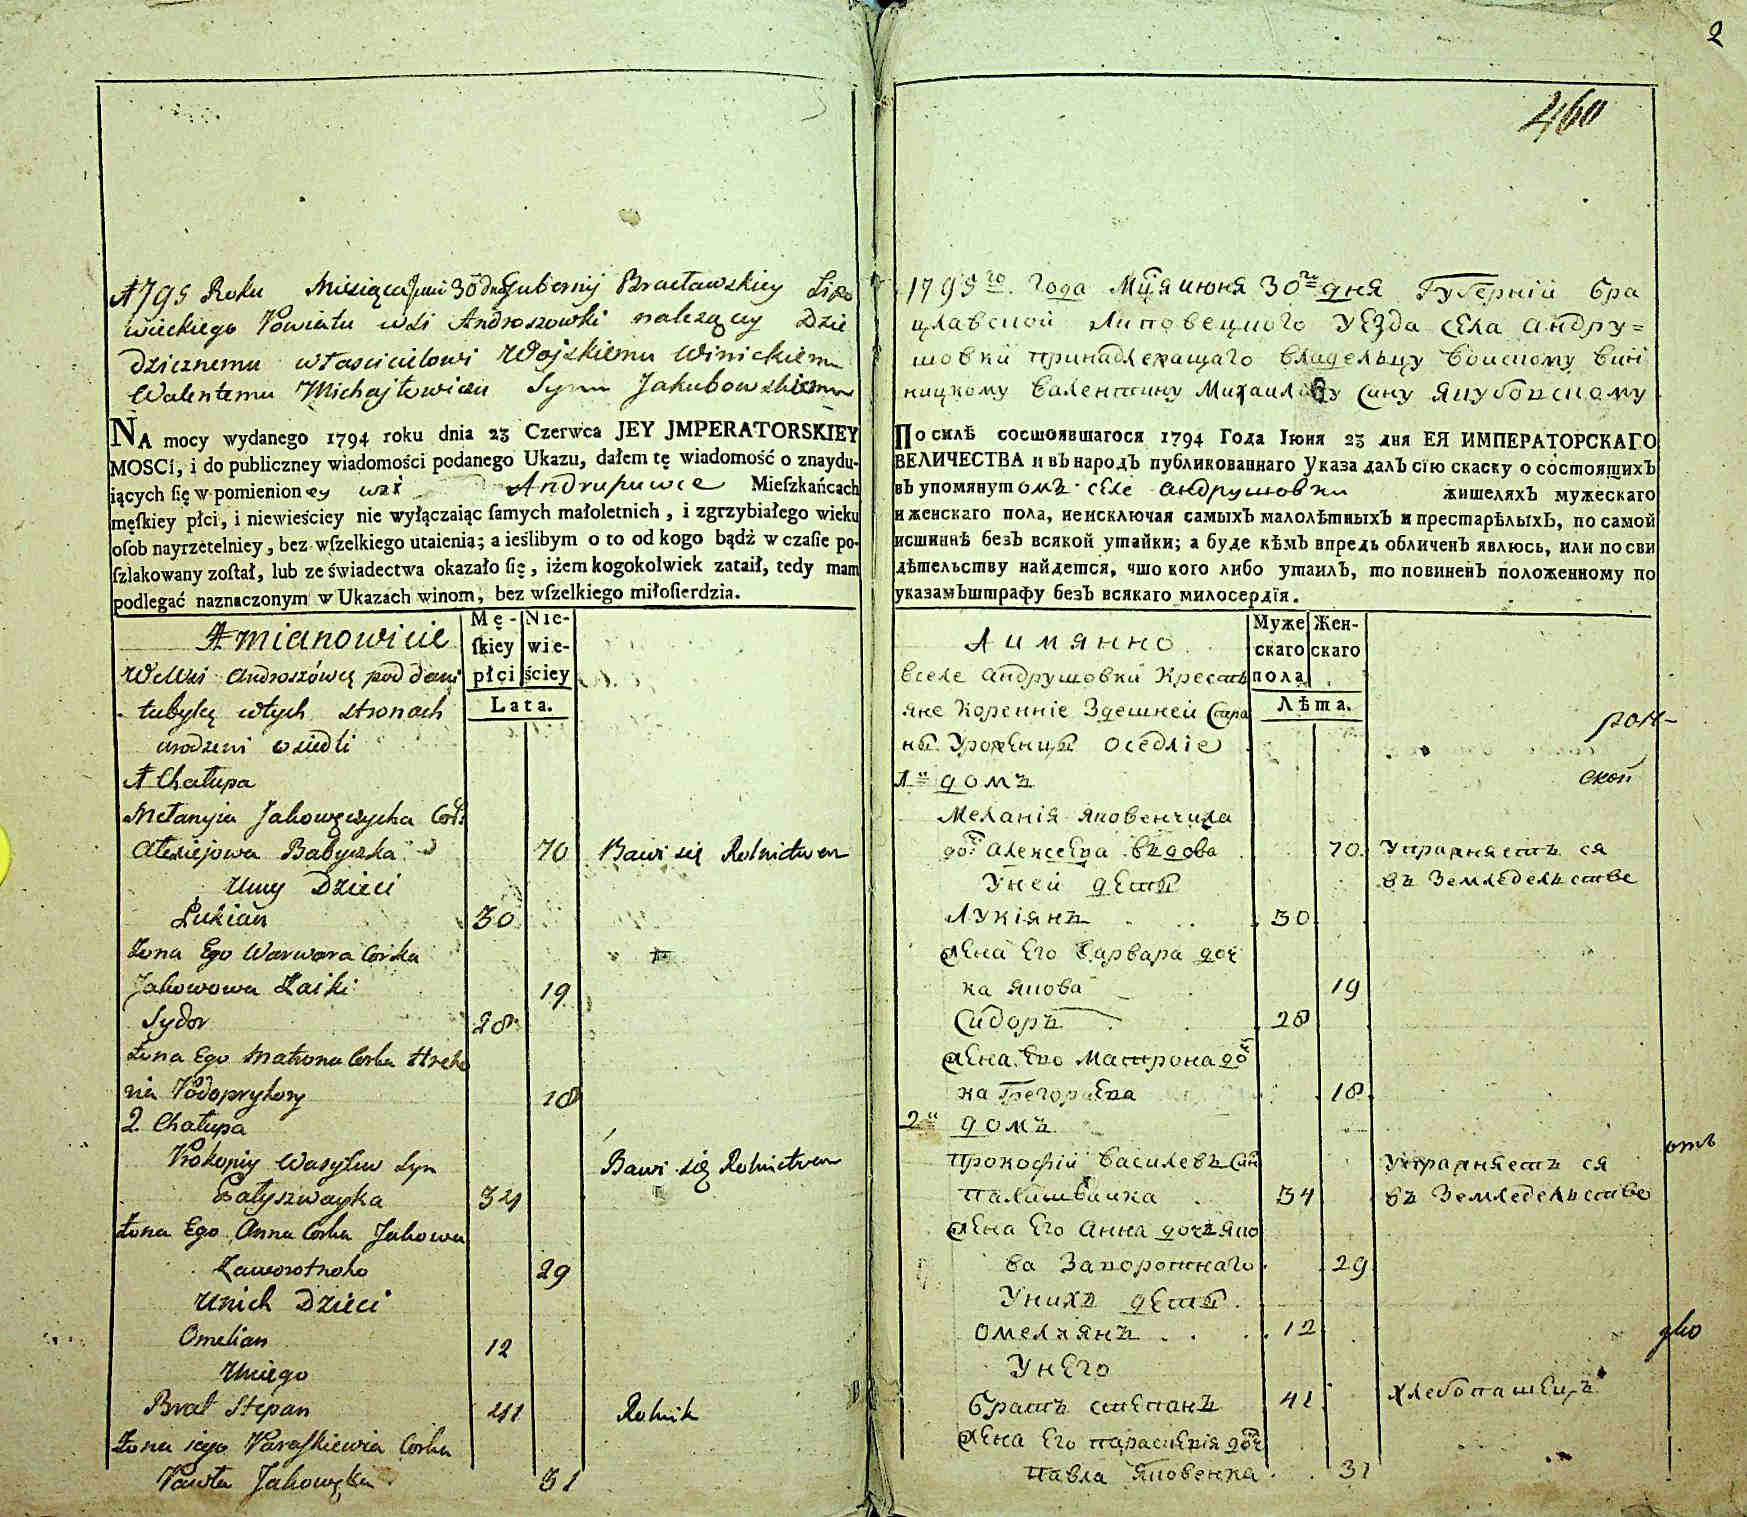 1795 Roku Miesiąca Juni 30 dnia Gubernij Bracławskiey Lipo
wieckiego Powiatu wsi Androszowki należący Dzie
dzicznemu włascicielowi Woyskiemu Winickiemu
Walentemu Michajłowiczu Synu Jakubowskiemu
NA mocy wydanego 1794 roku dnia 23 Czerwca JEY JMPERATORSKIEY
MOSCI, i do publiczney wiadomości podanego Ukazu, dałem tę wiadomość o znaydu-
iących ſię w pomienion ey wsi Andruszowce Mieſzkańcach
męſkiey płci, i niewieściey nie wyłączaiąc ſamych małoletnich, i zgrzybiałego wieku
oſob nayrzetelniey, bez wſzelkiego utaienia; a ieślibym o to od kogo bądź w czaſie po-
ſzlakowany zoſtał, lub ze świadectwa okazało ſię, iżem kogokolwiek zataił, tedy mam
podlegać naznaczonym w Ukazach winom, bez wſzelkiego miłoſierdzia.
A mianowicie
Mę-
ſkiey
płci
Nie-
wie-
ściey
Lata.
We Wsi Androszówcę pod dani
tubylcy wtych stronach
urodzeni osiedli
1 Chałupa
Mełanyia Jakowęczycha Cor:
Alexiejowa Babyczka 70 Bawi się Rolnictwem
Uniey Dzieci
Łukian 30
Żona Ego Warwara Corka
Jakowowa Zaiki 19
Sydor 28
Żona Ego Matrona Corka Hreho
ria Podopryhory 18
2. Chałupa
Prokopiy Wasylew Syn Bawi się Rolnictwem
Pałyszwayka 34
Żona Ego Anna Corka Jakowa
Zaworotnoho 29
Unich Dzieci
Omelian 12
Uniego
Brat Stepan 41 Rolnik
Żona iego Paraſkiewia Corka
Pawła Jakowęka 31
2
460
1795го Года Мця июня 30го дня Губерніи Бра
цлавской Липовецкого Уезда села Андру=
шовки принадлежащаго владельцу Войскому Вин
ницкому Валентину Михаилову Сину Якубовскому
По силѣ состоявшагося 1794 Года Іюня 23 дня ЕЯ ИМПЕРАТОРСКАГО
ВЕЛИЧЕСТВА и въ народъ публикованнаго Указа далъ сїю скаску о состоящихъ
въ упомянут омъ селе Андрушовки жителяхъ мужескаго
и женскаго пола, неисключая самыхъ малолѣтныхъ и престарѣлыхъ, по самой
истиннѣ безъ всякой утайки; а буде кѣмъ впредь обличенъ явлюсь, или по сви
дѣтельству найдется, что кого либо утаилъ, то повиненъ положенному по
указамъ штрафу безъ всякаго милосердїя.
А имянно
Муже
скаго
пола
Жен-
скаго
Лѣта.
Вселе Андрушовки Кресть
яне Коренніе Здешней Стра
ны Уроженцы оседліе
рон-
ской
1й домъ
Меланія Яковенчиха
доч Алексеева Вдова 70 Упражняетъ ся
въ Земледельстве
Уней дети
Лукіянъ 30
жена Его Варвара доч
ка Якова 19
Сидоръ 28
жена Его Матрона доч
ка Грегориева 18
2й домъ
Прокофій Василевъ Син Упражняетъ ся
Палишвайка 34 въ Земледельстве
отъ
жена Его Анна дочь Яко
ва Заворотнаго 29
Унихъ дети
Омелянъ 12
дво
Унего
братъ степанъ 41 Хлебопашецъ
жена Его параскевія доч
Павла Яковенка 31